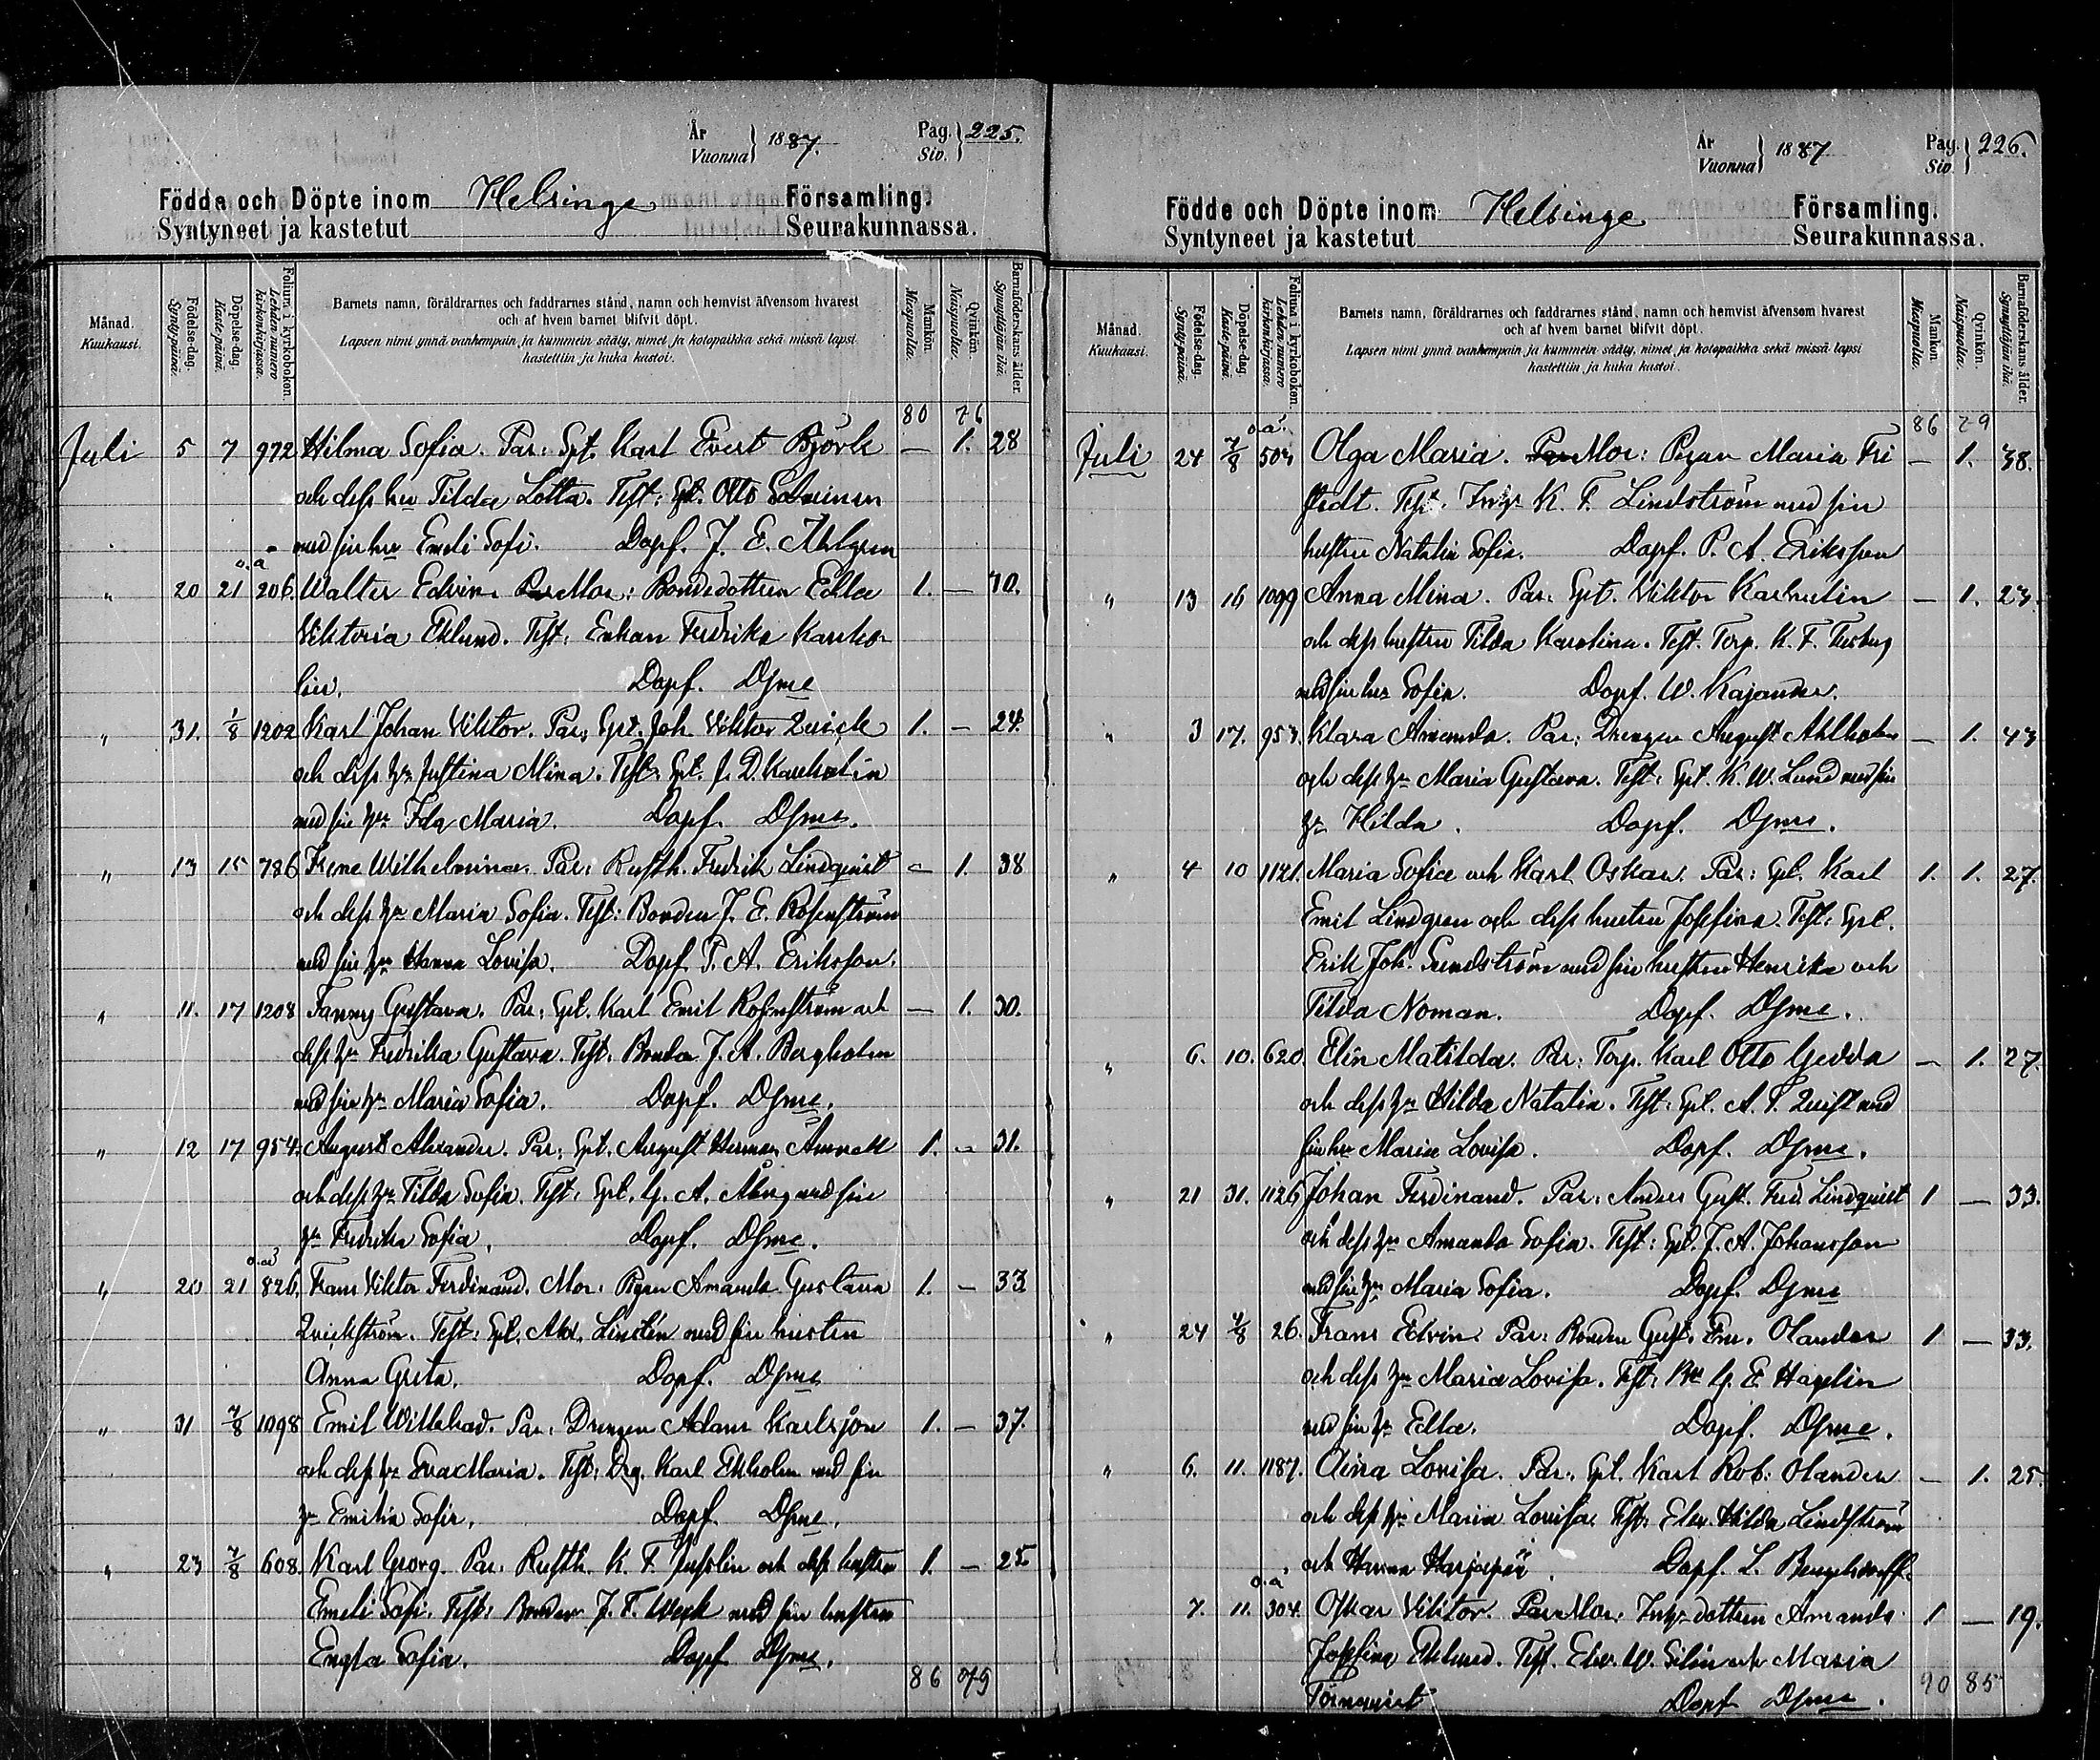 År
Vuonna } 1887. Pag. Siv. } 225.
Födda och Döpte inom Helsinge Församling.
Syntyneet ja kastetut Seurakunnassa.
Månad. Kuukausi. Födelse-dag. Synty-päivä. Döpelse-dag. Kaste-päivä. Folium i kyrkoboken. Lehden numero kirkonkirjassa. Barnets namn, föräldrarnes och faddrarnes stånd, namn och hemvist äfvensom hvarest
och af hvem barnet blifvit döpt.
Lapsen nimi ynnä vanhempain ja kummein sääty, nimet ja kotopaikka sekä missä lapsi
kastettiin ja kuka kastoi.
Mankön. Miespuolia. Qvinkön. Naispuolia. Barnaföderskans ålder. Synnyttäjän ikä.
80 76
Juli 5 7 972 Hilma Sofia. Par: Spt. Karl Evert Björk — 1. 28
och dess hu Tilda Lotta. Test: Spt. Otto
med sin hu Emeli Sofi. Dopf. J. E. Ahlgren
o.ä
" 20 21 206. Walter Edvin. Mor: Bondedottren Edla 1. — 40.
Viktoria Eklund. Test: Enkan Fredrika Karho-
lin. Dopf. Dsme
" 31. 1/8 1202 Karl Johan Viktor. Par: Spt. Joh. Viktor Qvick 1. — 24.
och dess hu Justina Mina. Test: Spt. J. D. Karholin
med sin hu Ida Maria. Dopf. Dsme.
" 13 15 786 Irene Wilhelmina. Par: Rusth. Fredrik Lindquist — 1. 38
och dess hu Maria Sofia. Test: Bonden J. E. Rosenström
med sin hu Hanna Lovisa. Dopf. P. A. Eriksson.
" 11. 17 1208 Fanny Gustava. Par: Spt. Karl Emil Rosenström och — 1. 30.
dess hu Fredrika Gustava. Test: Bonden J. A. Bergholm
med sin hu Maria Sofia. Dopf. Dsme.
" 12 17 954. August Alexander. Par: Spt. August Herman 1. — 31.
och dess hu Tilda Sofia. Test: Spt. G. A. Åberg med sin
hu Fredrika Sofia. Dopf. Dsme.
o.ä
" 20 21 826. Frans Viktor Ferdinand. Mor: Pigan Amanda Gustava 1. — 33
Qvickström. Test: Spt. Alex. Lindén med sin hustru
Anna Greta. Dopf. Dsme
" 31 7/8 1098 Emil Willehad. Par: Drengen Adam Karlsson 1. — 37.
och dess hu Eva Maria. Test: Drg. Karl Ekholm med sin
hu Emilia Sofia. Dopf. Dsme.
" 23 7/8 608. Karl Georg. Par: Rusth. K. F. Juslin och dess hustru 1. — 25
Emeli Sofi. Test: Bonden J. F. Weck med sin hustru
Engla Sofia. Dopf. Dsme.
86 79
År
Vuonna } 1887 Pag. Siv. } 226.
Födde och Döpte inom Helsinge Församling.
Syntyneet ja kastetut Seurakunnassa.
Månad. Kuukausi. Födelse-dag. Synty-päivä. Döpelse-dag. Kaste-päivä. Folium i kyrkoboken. Lehden numero kirkonkirjassa. Barnets namn, föräldrarnes och faddrarnes stånd, namn och hemvist äfvensom hvarest
och af hvem barnet blifvit döpt.
Lapsen nimi ynnä vanhempain ja kummein sääty, nimet ja kotopaikka sekä missä lapsi
kastettiin ja kuka kastoi.
Mankön. Miespuolia. Qvinkön. Naispuolia. Barnaföderskans ålder. Synnyttäjän ikä.
o.ä. 86 79
Juli 24 7/8 504 Olga Maria. Mor: Pigan Maria Fri — 1. 38.
stedt. Test: Inhs K. F. Lindström med sin
hustru Natalia Sofia. Dopf. P. A. Eriksson
" 13 16 1099 Anna Mina. Par: Spt. Viktor Karhulin — 1. 23.
och dess hustru Tilda Karolina. Test. Torp. K. F.
med sin hu Sofia. Dopf. W. Kajander.
" 3 17. 953. Klara Amanda. Par: Drengen August Ahlholm — 1. 43
och dess hu Maria Gustava. Test: Spt. K. W. Lund med sin
hu Hilda. Dopf. Dsme.
" 4 10 1121. Maria Sofia och Karl Oskar. Par: Spt. Karl 1. 1. 27.
Emil Lindgren och dess hustru Josefina. Test: Spt.
Erik Joh. Sundström med sin hustru Henrika och
Tilda Noman. Dopf. Dsme.
" 6. 10. 620. Elin Matilda. Par: Torp. Karl Otto Gedda — 1. 27.
och dess hu Hilda Natalia. Test: Spt. A. F. Qvist med
sin hu Maria Lovisa. Dopf. Dsme.
" 21 31. 1126 Johan Ferdinand. Par: Anders Gust. Fred. Lindquist 1 — 33.
och dess hu Amanda Sofia. Test: Spt. J. A. Johansson
med sin hu Maria Sofia. Dopf. Dsme
" 24 7/8 26. Frans Edvin. Par: Bonden Gust. Em. Olander 1 — 33.
och dess hu Maria Lovisa. Test: G. E. Hagelin
med sin hu Edla. Dopf. Dsme.
" 6. 11. 1187. Aina Lovisa. Par: Spt. Karl Rob. Olander — 1. 25.
och dess hu Maria Lovisa. Test: Elev. Hilda Lindström
och Hanna Harjapää. Dopf. L. Bengelsdorff.
o.ä
7. 11. 304. Oskar Viktor. Mor: Inhs dottren Amanda 1 — 19.
Josefina Eklund. Test. Elev. W. Silin och Maria
Törnqvist Dopf Dsme.
90 85